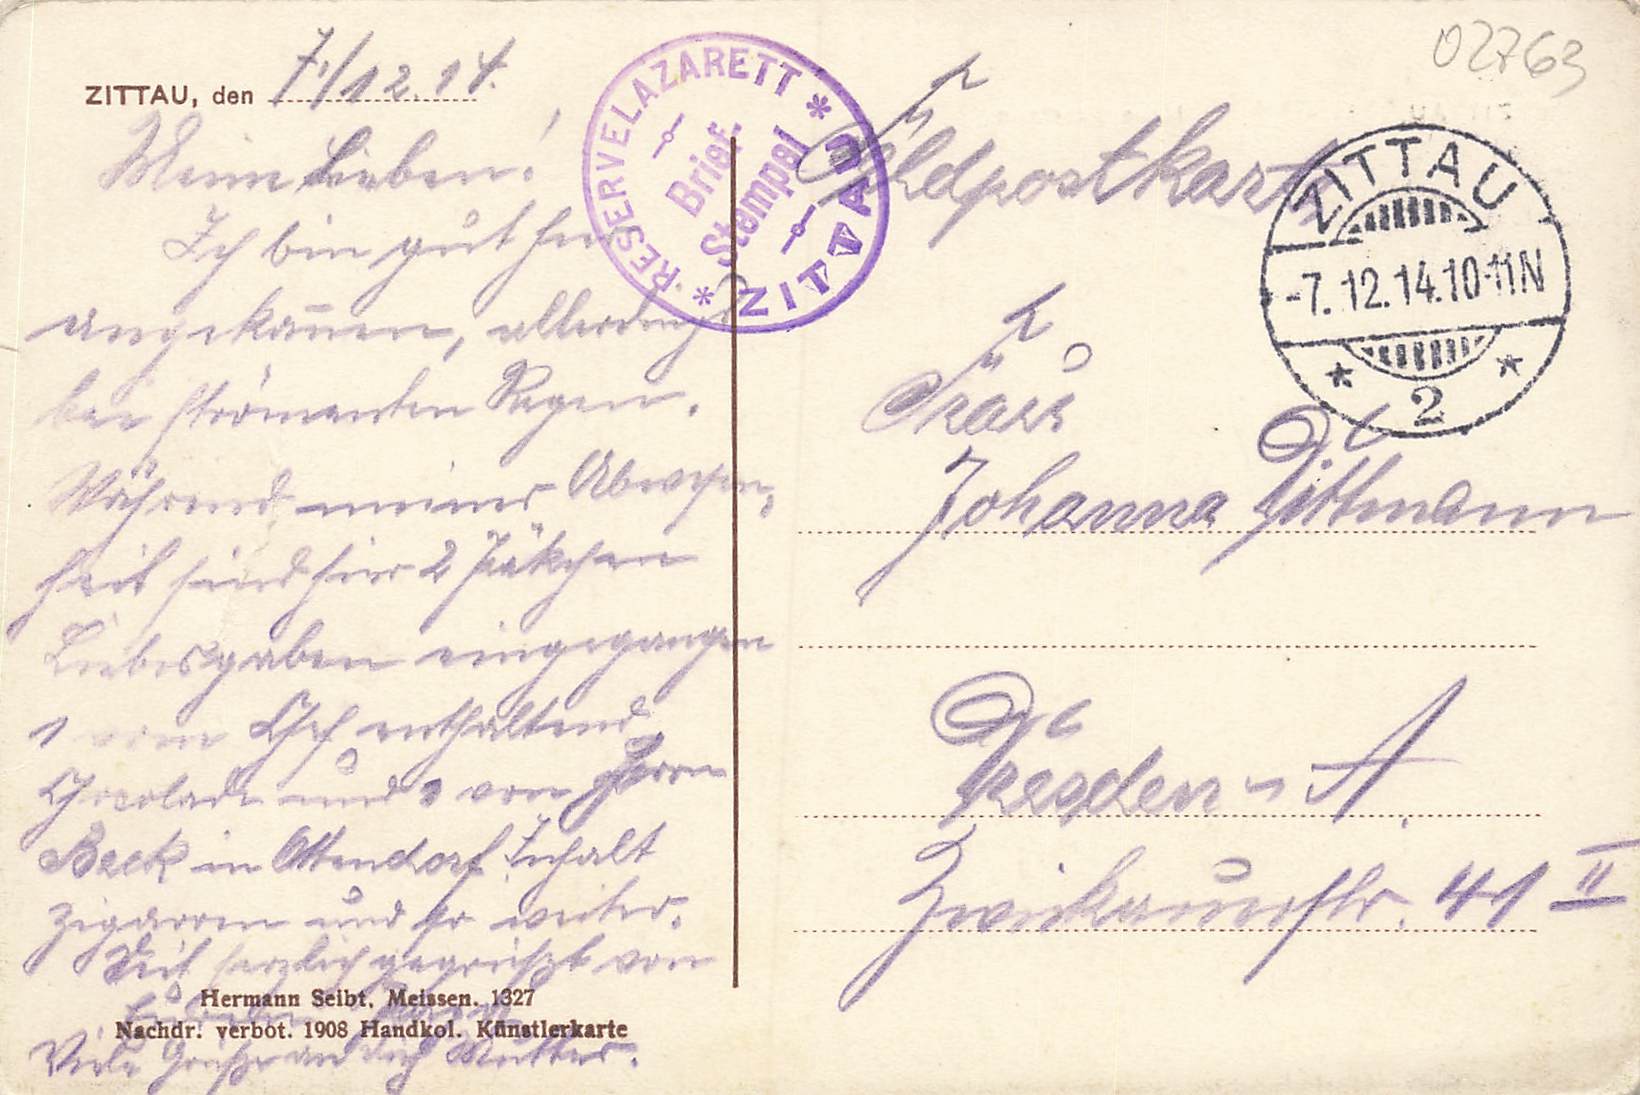 02763
ZITTAU, den 7./12.14.
Meine Lieben!
Ich bin gut hier
angekom̅en, allerdings
bei strömenden Regen.
Während meiner Abwesen-
heit sind hier 2 Päkchen
Liebesgaben eingegangen
1 vom Chef enthaltend
Chocolade und 1 von Herrn
Beck in Ottendorf. Inhalt
Zigarren und so weiter.
Seit herzlich gegrüßt von
Viele Grüße an dich Mutter.
Hermann Seibt. Meissen. 1327
Nachdr. verbot. 1908 Handkol. Künstlerkarte
* RESERVELAZARETT * ZITTAU
Brief-
Stempel
Feldpostkarte
ZITTAU
-7.12.14.10-11N
* 2 *
Frau
Johanna Dittmann
Dresden - A.
Zwickauerstr. 41 II